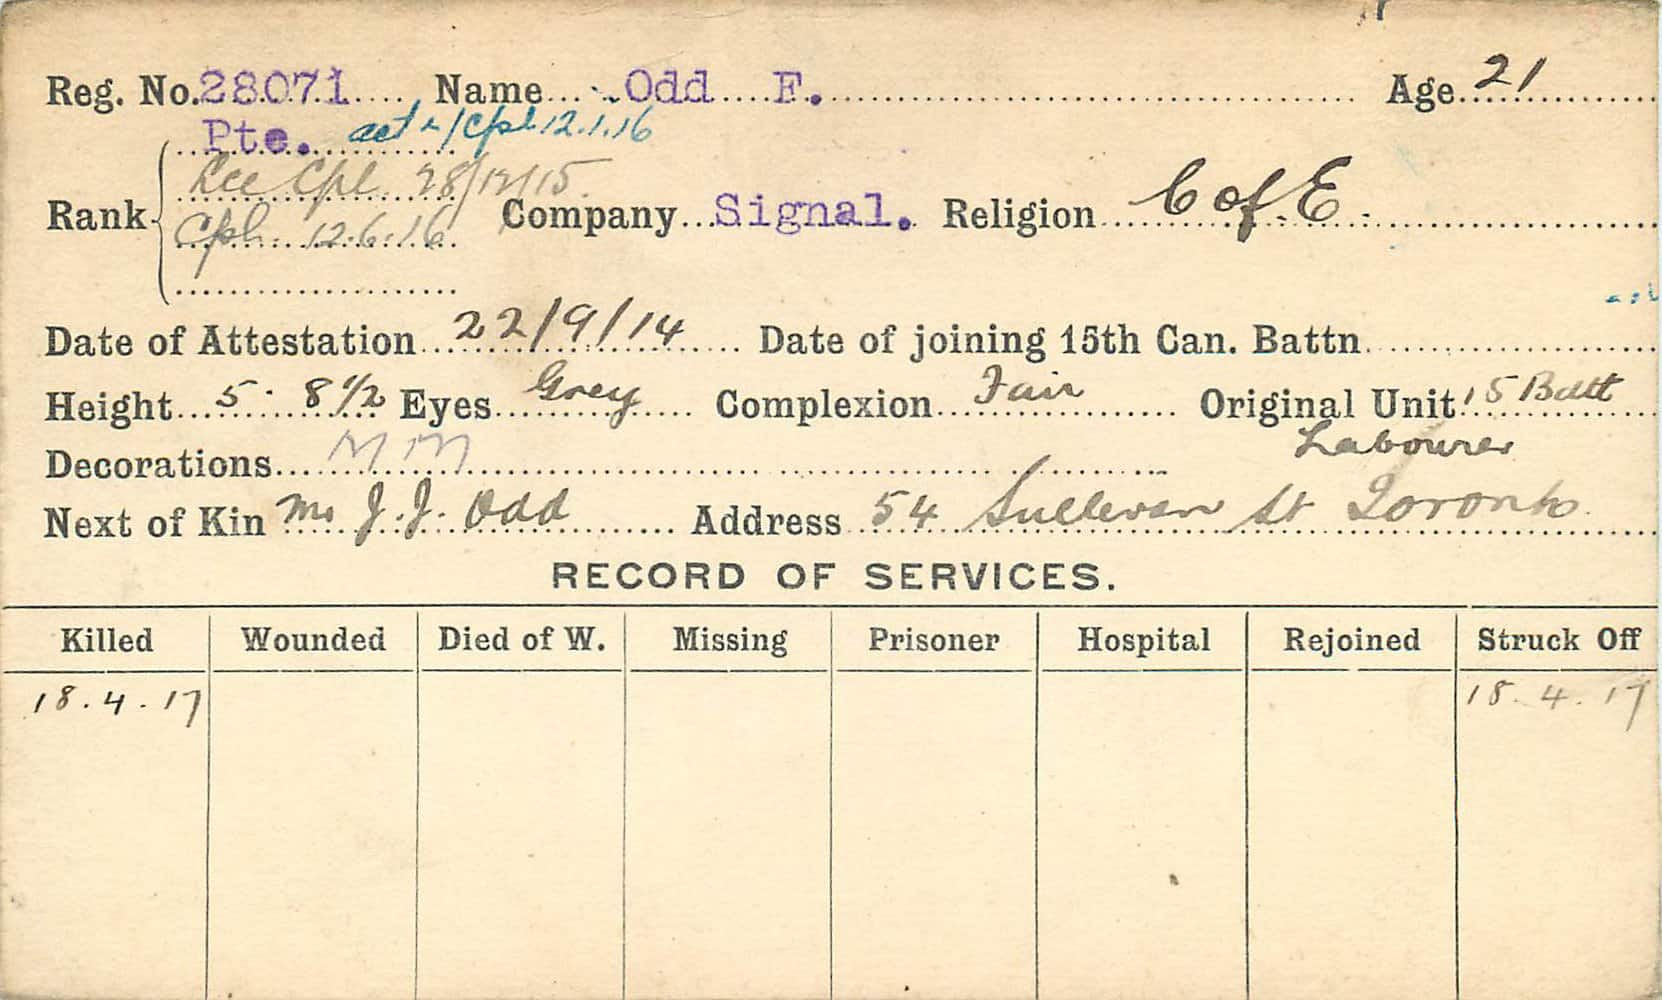 Reg. No. 28071 Name Odd F. Age 21
Pte. act /Cpl 12.1.16
Lce Cpl. 28/12/15.
Rank Cpl. 12.6.16. Company Signal. Religion C of E.
Date of Attestation 22/9/14 Date of joining 15th Can. Battn.
Height 5 8 1/2 Eyes Grey Complexion Fair Original Unit 15 Batt
Decorations MM Labourer
Next of Kin J. J. Odd Address 54 Sullivan St Toronto
RECORD OF SERVICES.
Killed Wounded Died of W. Missing Prisoner Hospital Rejoined Struck Off
18.4.17 18.4.17